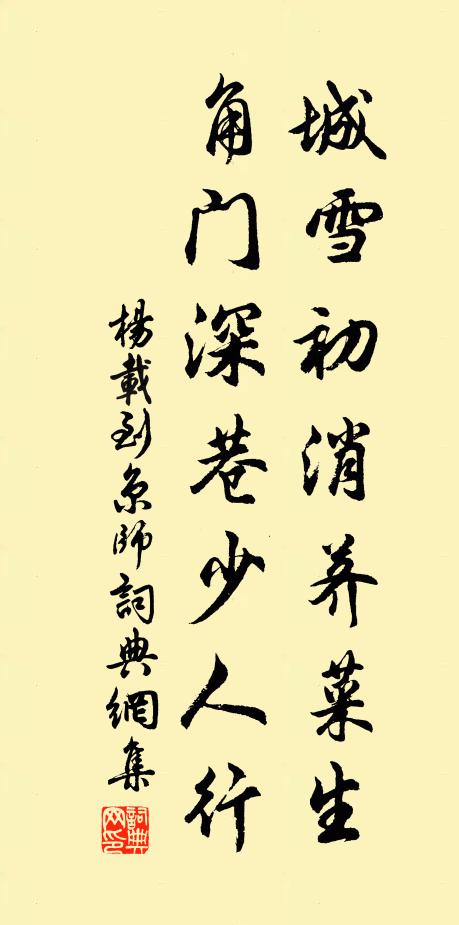 城雪初消荠菜生
角门深巷少人行
楊載到京師詞典網集
詞典網印